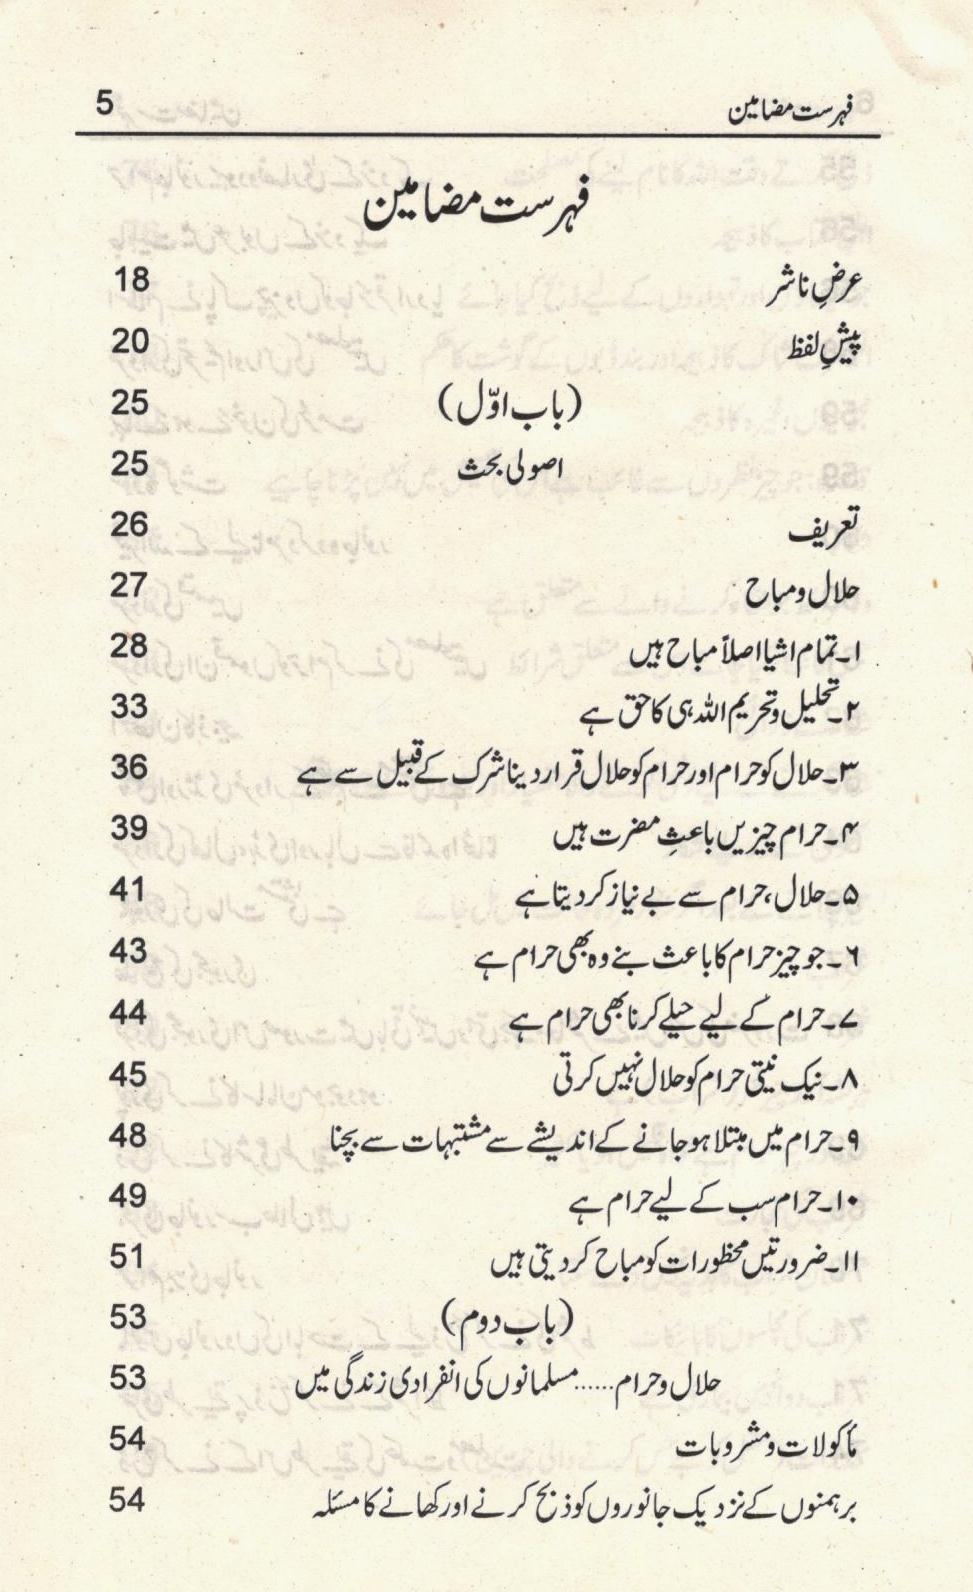 فہرست مضامین 5
فہرست مضامین
عرضِ ناشر 18
پیشِ لفظ 20
(باب اوّل) 25
اصولی بحث 25
تعریف 26
حلال و مباح 27
۱۔ تمام اشیا اصلاً مباح ہیں 28
۲۔ تحلیل و تحریم اللہ ہی کا حق ہے 33
۳۔ حلال کو حرام اور حرام کو حلال قرار دینا شرک کے قبیل سے ہے 36
۴۔ حرام چیزیں باعثِ مضرت ہیں 39
۵۔ حلال، حرام سے بے نیاز کر دیتا ہے 41
۶۔ جو چیز حرام کا باعث بنے وہ بھی حرام ہے 43
۷۔ حرام کے لیے حیلے کرنا بھی حرام ہے 44
۸۔ نیک نیتی حرام کو حلال نہیں کرتی 45
۹۔ حرام میں مبتلا ہو جانے کے اندیشے سے مشتبہات سے بچنا 48
۱۰۔ حرام سب کے لیے حرام ہے 49
۱۱۔ ضرورتیں محظورات کو مباح کر دیتی ہیں 51
(باب دوم) 53
حلال و حرام ...... مسلمانوں کی انفرادی زندگی میں 53
مأکولات و مشروبات 54
برہمنوں کے نزدیک جانوروں کو ذبح کرنے اور کھانے کا مسئلہ 54